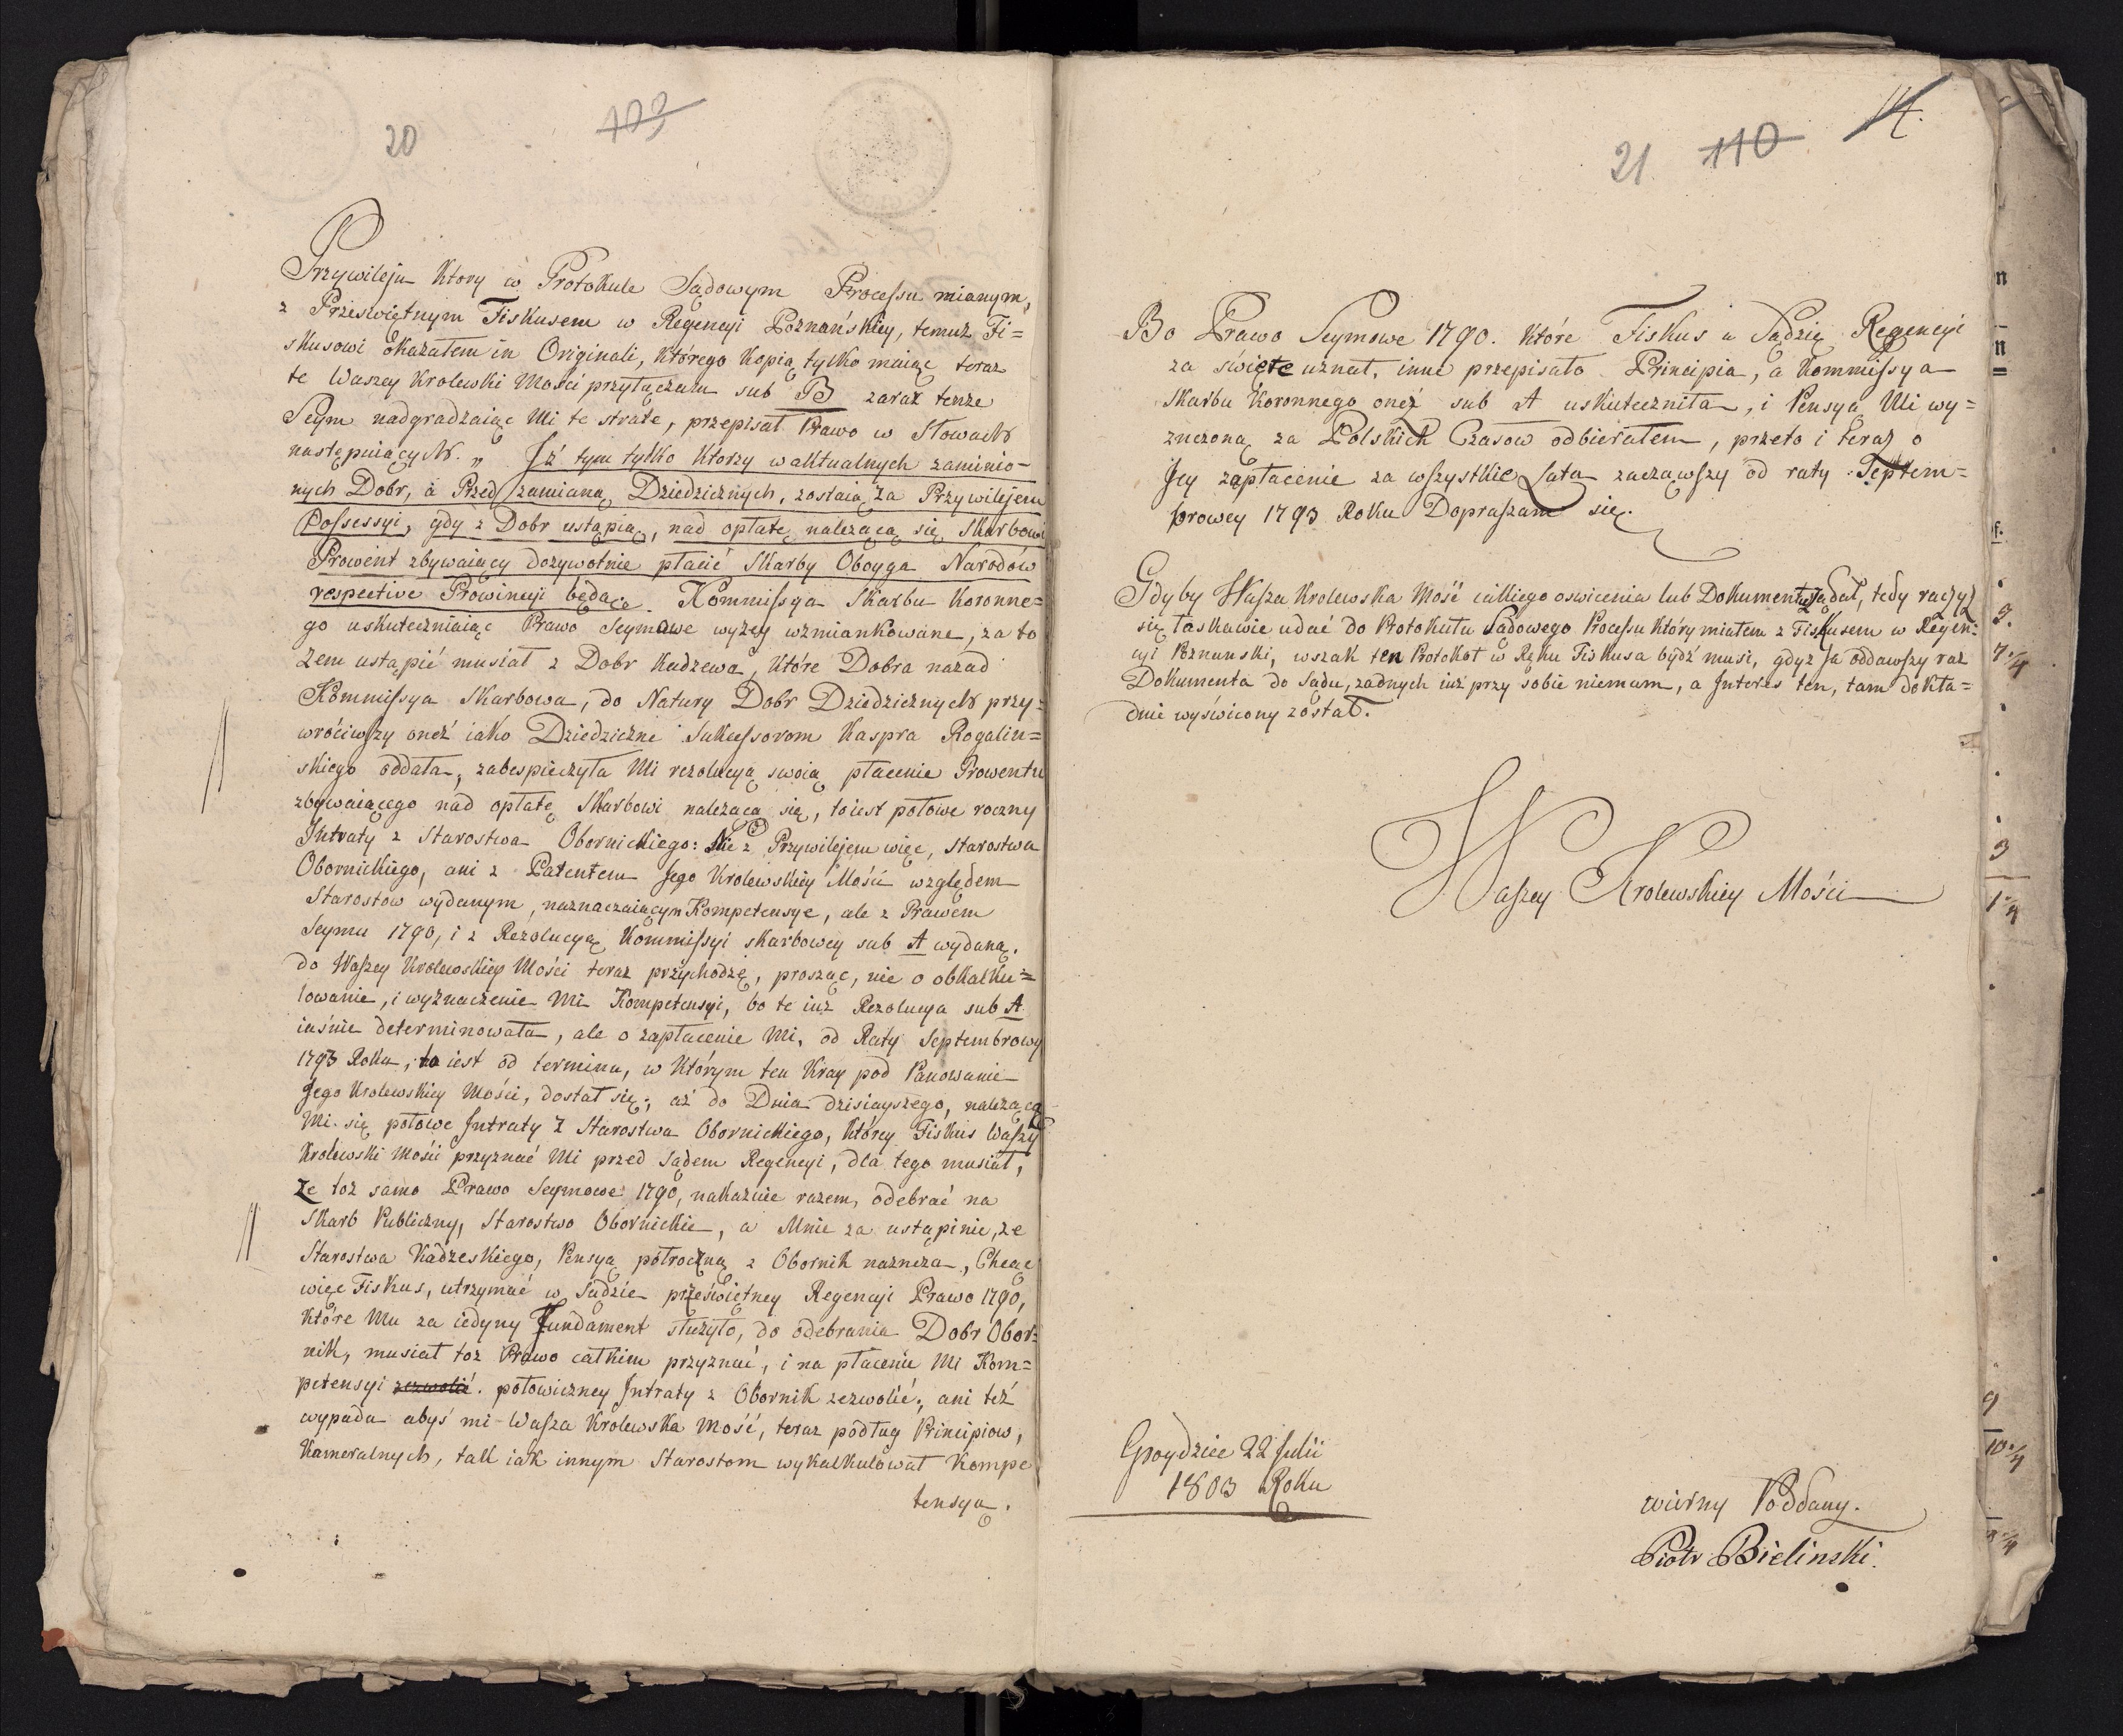 20
103
Przywileju Ktory w Protokule Sądowym Processu mianym,
z Przeświętnym Fiskusem w Regencyi Poznańskiey, temuż Fi=
skusowi okazałem in Originali, którego Kopią tylko maiąc teraz
te Waszey Krolewski Mości przyłączam sub B zaraz tenże
Seym nadgradzaiąc Mi te strate, przepisał Prawo w Słowach
następuiących. „ Iż tym tylko Ktorzy w aktualnych zaminio=
nych Dobr, a Przed zamianą Dziedzicznych, zostaią za Przywilejem
Possessyi, gdy z Dobr ustąpią, nad opłatę należącą się Skarbowi
Prowent zbywaiący dożywotnie płacić Skarby Oboyga Narodów
respective Prowincyi będące. Kommissya Skarbu Koronne=
go uskuteczniaiąc Prawo Seymowe wyżey wzmiankowane, za to
żem ustąpić musiał z Dobr Kadzewa, które Dobra nazad
Kommissya Skarbowa, do Natury Dobr Dziedzicznych przy=
wróciwszy oneż iako Dziedziczne Sukcessorom Kaspra Rogalin=
skiego oddała, zabespieczyła Mi rezolucyą swoią płacenie Prowentu
zbywaiącego nad opłatę Skarbowi należącą się, to iest połowe roczny
Intraty z Starostwa Obornickiego: Nie z Przywilejem więc, Starostwa
Obornickiego, ani z Patentem Jego Krolewskiey Mości względem
Starostow wydanym, naznaczaiącym Kompetensye, ale z Prawem
Seymu 1790, i z Rezolucyą Kommissyi skarbowey sub A wydaną.
do Waszey Krolewskiey Mości teraz przychodzę, prosząc, nie o obkalku=
lowanie, i wyznaczenie Mi Kompetensyi, bo te iuż Rezolucya sub A
iaśnie determinowała, ale o zapłacenie Mi, od Raty Septembrowy
1793 Roku, to iest od terminu, w którym ten Kray pod Panowanie
Jego Krolewskiey Mości, dostał się; aż do Dnia dzisiayszego, należącą
Mi się połowe Intraty z Starostwa Obornickiego, którey Fiskus Waszy
Krolewski Mości przyznać Mi przed Sądem Regencyi, dla tego musiał,
że toż samo Prawo Seymowe 1790, nakazuie razem, odebrać na
Skarb Publiczny, Starostwo Obornickie, a Mnie za ustąpinie, ze
Starostwa Kadzeskiego, Pensyą półroczną z Obornik nazncza, Chcąc
więc Fiskus, utrzymać w Sądzie przeświętney Regencyi Prawo 1790,
które Mu za iedyny Fundament służyło, do odebrania Dobr Obor=
nik, musiał toż Prawo całkiem przyznać, i na płacenie Mi Kom=
petensyi zezwolić. połowiczney Intraty z Obornik zezwolić; ani też
wypada abyś mi Wasza Krolewska Mość, teraz podług Principiow,
Kameralnych, tak iak innym Starostom wykalkulował Kompe
tensyą.
21 110 14.
Bo Prawo Seymowe 1790. które Fiskus w Sądzie Regencyi
za święte uznał, inne przepisało Principia, a Kommissya
Skarbu Koronnego oneż sub A uskuteczniła, i Pensyą Mi wy=
znczoną za Polskich Czasow odbierałem, przeto i teraz o
Jey zapłacenie za wszystkie Lata zacząwszy od raty Septem=
browey 1793 Roku Dopraszam się.
Gdyby Wasza Krolewska Mość iakiego oswicenia lub Dokumentu żądał, tedy raczysz
się łaskawie udać do Protokułu Sądowego Processu który miałem z Fiskusem w Regen=
cyi Poznanski, wszak ten Protokoł w Ręku Fiskusa bydź musi, gdyż Ja oddawszy raz
Dokumenta do Sądu, żadnych iuż przy sobie niemam, a Interes ten, tam dokła=
dnie wyświcony został.
Waszey Krolewskiey Mości
Groydziec 22 Julii
1803 Roku
wierny Poddany.
Piotr Bielinski.